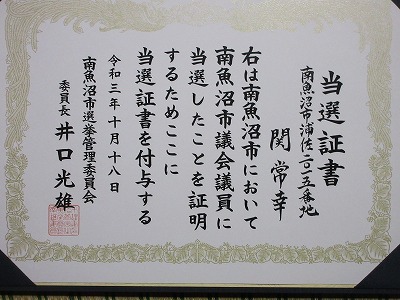 当選証書
南魚沼市浦佐二〇一五番地
関常幸
右は南魚沼市において
南魚沼市議会議員に
当選したことを証明
するためここに
当選証書を付与する
令和三年十月十八日
南魚沼市選挙管理委員会
委員長 井口光雄